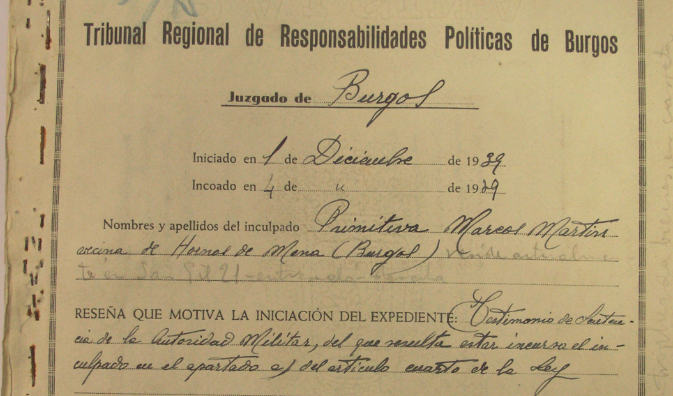 Tribunal Regional de Responsabilidades Políticas de Burgos
Juzgado de Burgos
Iniciado en 1 de Diciembre de 1939
Incoado en 4 de " de 1939
Nombres y apellidos del inculpado Primitiva Marcos Martin
vecina de Hornos de Mena (Burgos) reside actualmen
te en San Gil 21
RESEÑA QUE MOTIVA LA INICIACIÓN DEL EXPEDIENTE: Testimonio de Senten-
cia de la Autoridad Militar, del que resulta estar incurso el in-
culpado en el apartado a) del artículo cuarto de la Ley